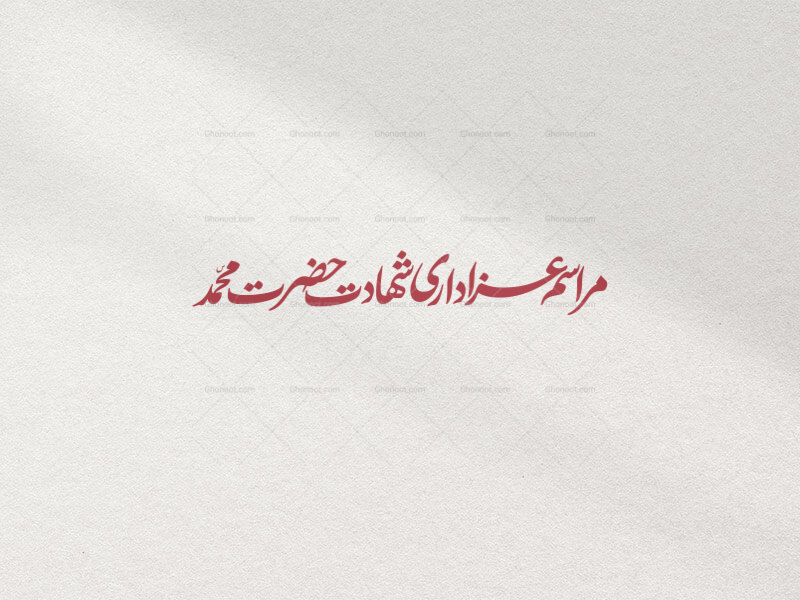 Ghonoot.com Ghonoot.com Ghonoot.com Ghonoot.com Ghonoot.com
Ghonoot.com Ghonoot.com Ghonoot.com Ghonoot.com Ghonoot.com
مراسم عزاداری شهادت حضرت محمّد
Ghonoot.com Ghonoot.com Ghonoot.com Ghonoot.com Ghonoot.com
Ghonoot.com Ghonoot.com Ghonoot.com Ghonoot.com Ghonoot.com